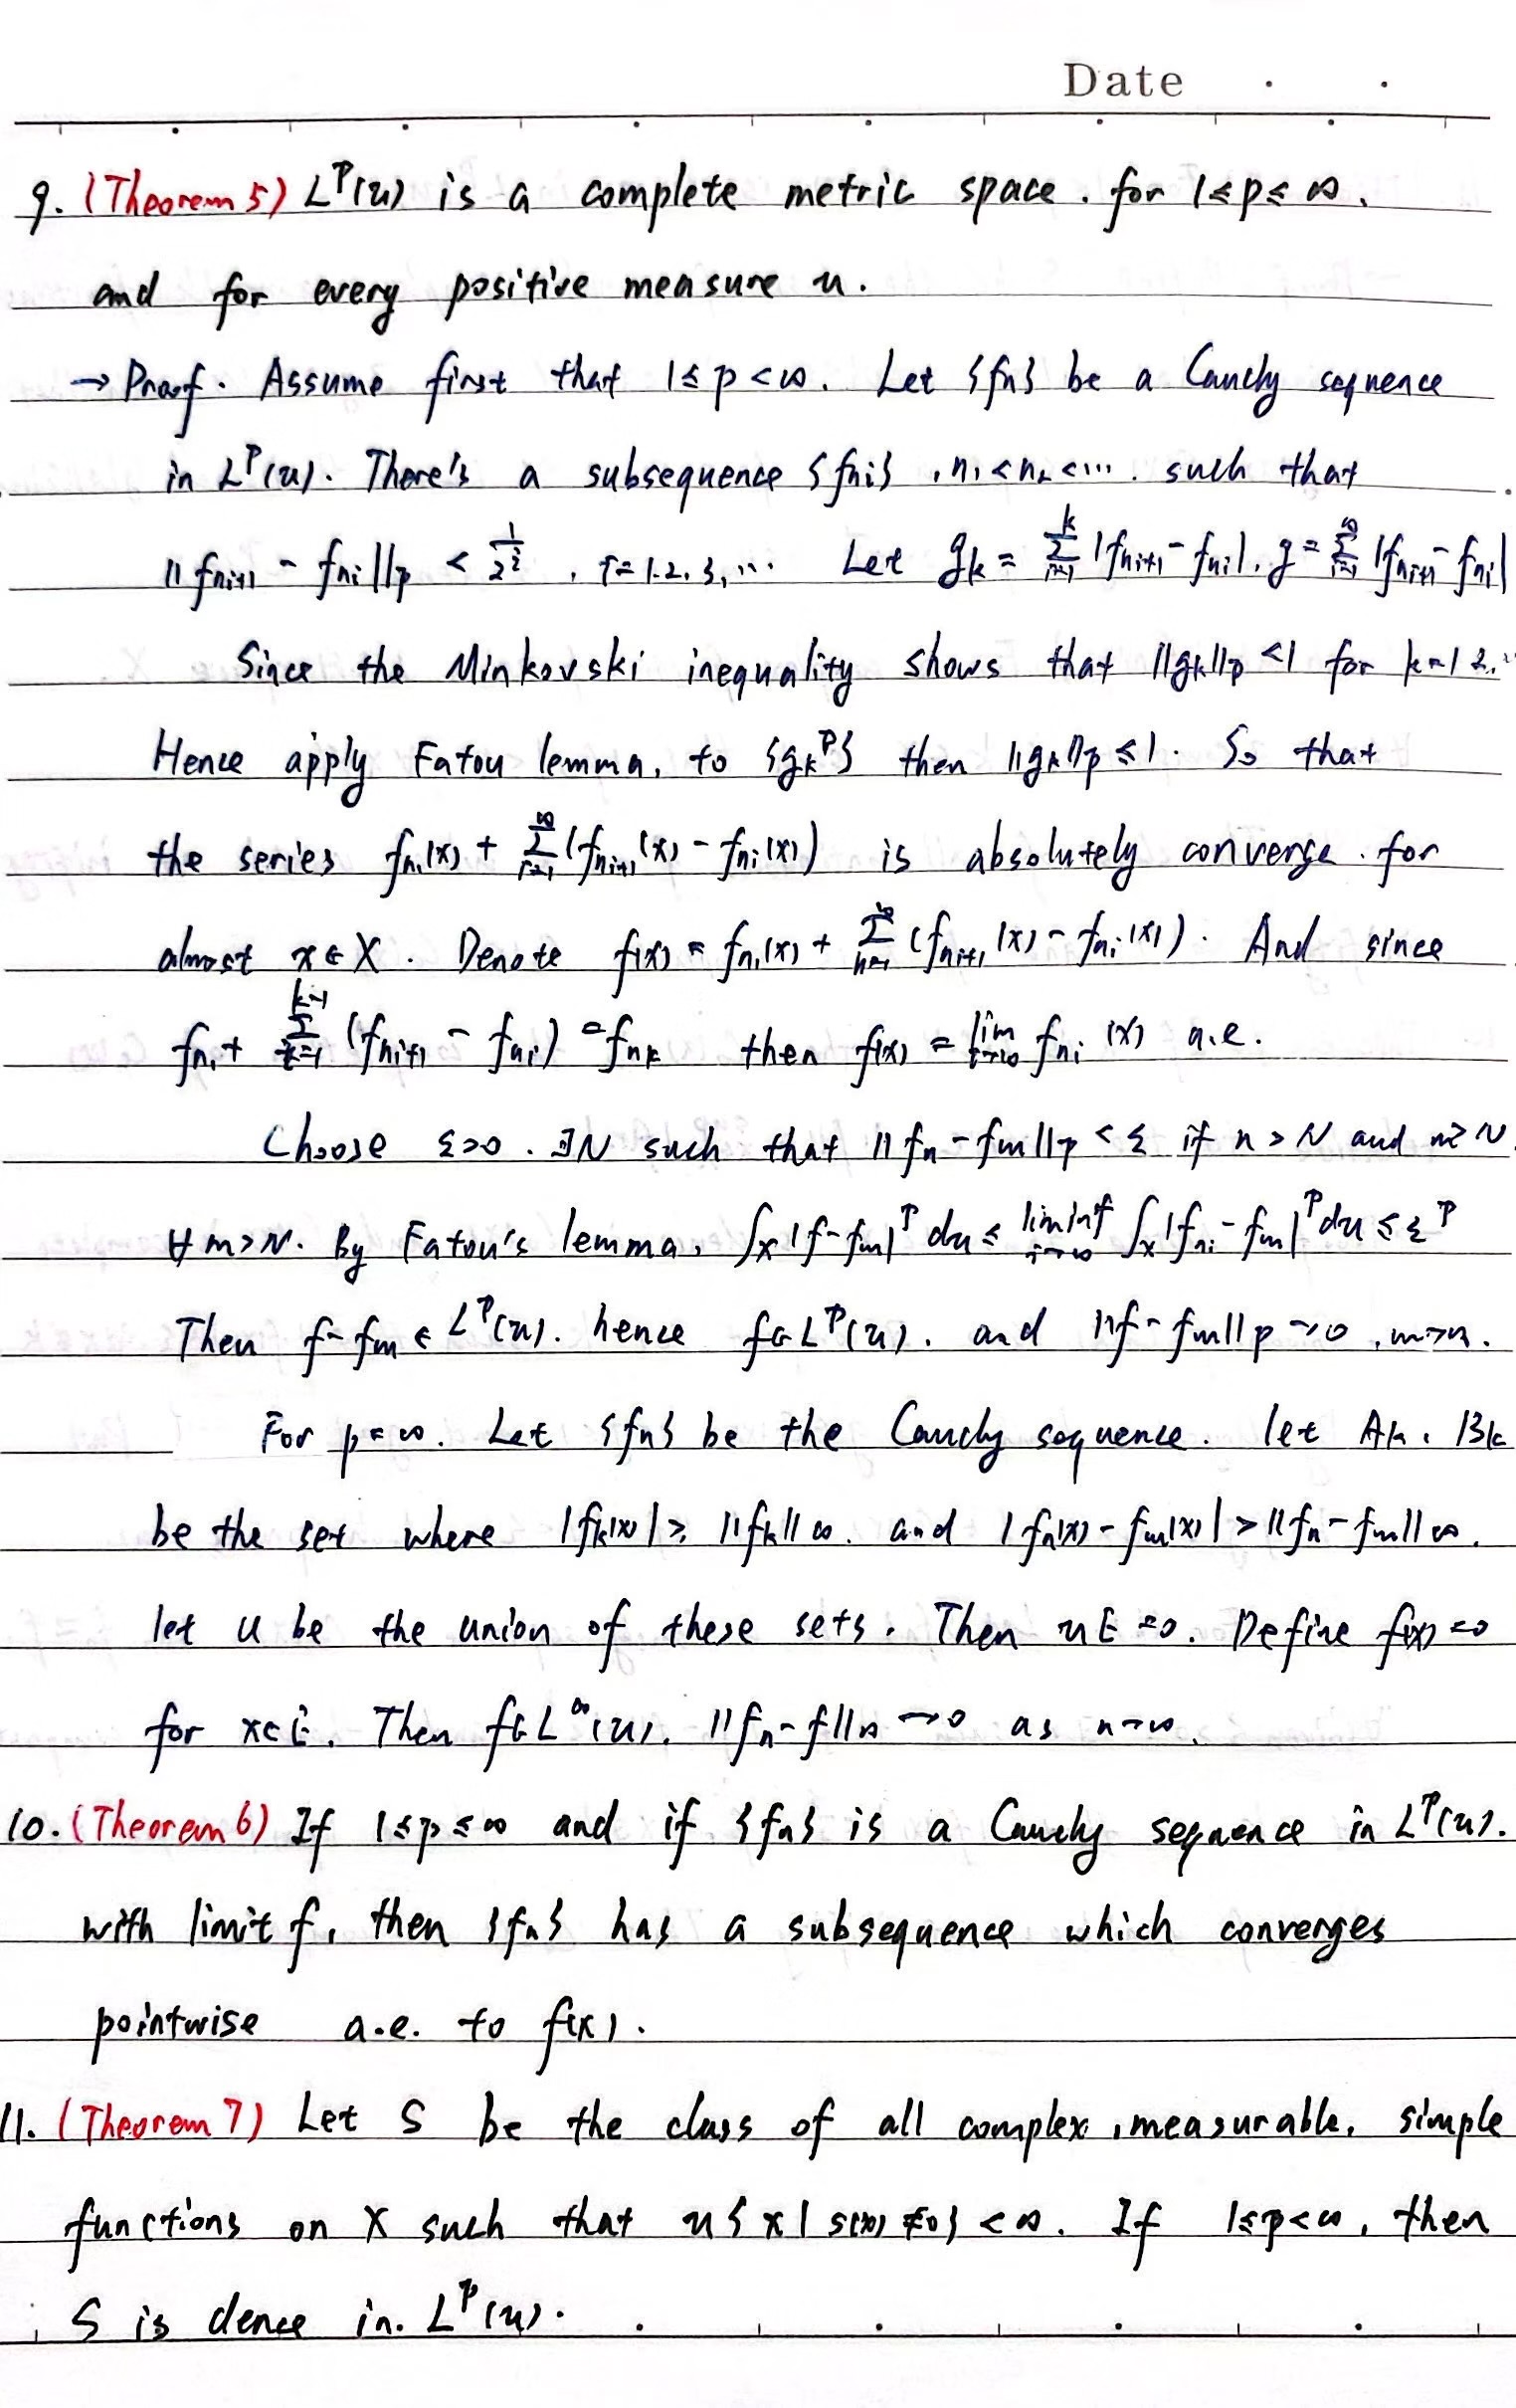 Date . .
9. (Theorem 5) L^p(u) is a complete metric space. for 1≤p≤∞.
and for every positive measure u.
→ Proof. Assume first that 1≤p<∞. Let {fn} be a Cauchy sequence
in L^p(u). There's a subsequence {fni}, n1<n2<…. such that
||fni+1 - fni||p < 1/2^i, i=1.2.3,… Let gk = Σ_{i=1}^{k} |fni+1 - fni|. g = Σ_{i=1}^{∞} |fni+1 - fni|
Since the Minkovski inequality shows that ||gk||p <1 for k=1 2.…
Hence apply Fatou lemma, to {gk^p} then ||gk||p ≤1. So that
the series fn1(x) + Σ_{i=1}^{∞} (fni+1(x) - fni(x)) is absolutely converge. for
almost x∈X. Denote f(x) = fn1(x) + Σ_{n=1}^{∞} (fni+1(x) - fni(x)). And since
fn1 + Σ_{k=1}^{k-1} (fni+1 - fni) = fnk then f(x) = lim_{i→∞} fni(x) a.e.
Choose ε>0. ∃N such that ||fn - fm||p < ε if n > N and m>N.
∀m>N. By Fatou's lemma, ∫_X |f-fm|^p du ≤ liminf_{i→∞} ∫_X |fni - fm|^p du ≤ ε^p
Then f-fm ∈ L^p(u). hence f∈L^p(u). and ||f-fm||p →0, m→∞.
For p=∞. Let {fn} be the Cauchy sequence. let Ak, Bk
be the set where |fk(x)| > ||fk||∞. and |fn(x) - fm(x)| > ||fn - fm||∞.
let U be the union of these sets. Then uE =0. Define f(x)=0
for x∈E. Then f∈L^∞(u). ||fn-f||∞ →0 as n→∞.
10. (Theorem 6) If 1≤p≤∞ and if {fn} is a Cauchy sequence in L^p(u).
with limit f, then {fn} has a subsequence which converges
pointwise a.e. to f(x).
11. (Theorem 7) Let S be the class of all complex, measurable, simple
functions on X such that u{x| s(x)≠0} <∞. If 1≤p<∞, then
S is dence in. L^p(u).